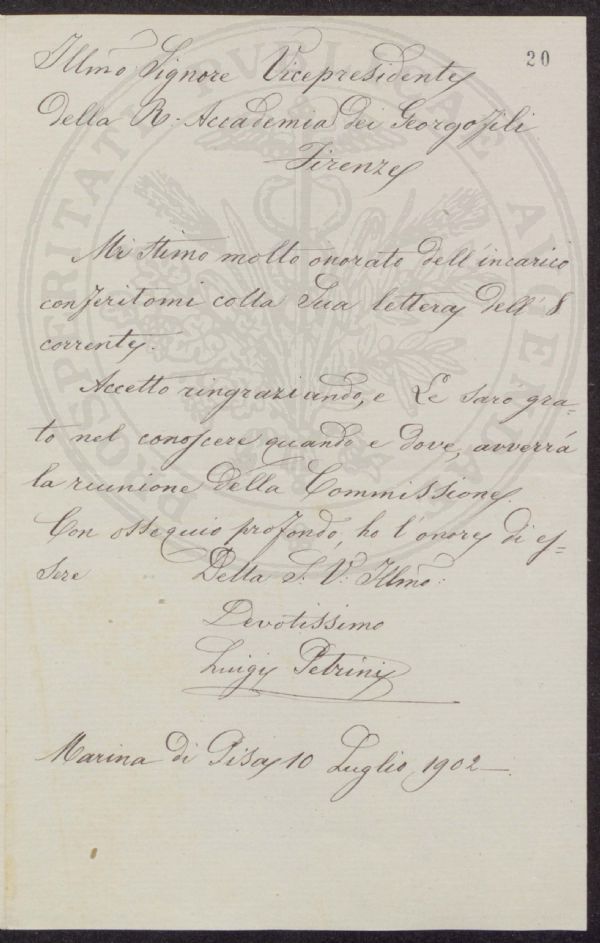 20
Illmo Signore Vicepresidente
della R. Accademia dei Georgofili
Firenze
Mi stimo molto onorato dell'incarico
conferitomi colla Sua lettera dell' 8
corrente.
Accetto ringraziando, e Le saro gra=
to nel conoscere quando e dove, avverrá
la reunione della Commissione.
Con ossequio profondo, ho l'onore di es=
sere Della S. V. Illma:
Devotissimo
Luigi Petrini
Marina di Pisa 10 Luglio 1902
PROSPERITATI PVBLICAE AVGENDAE